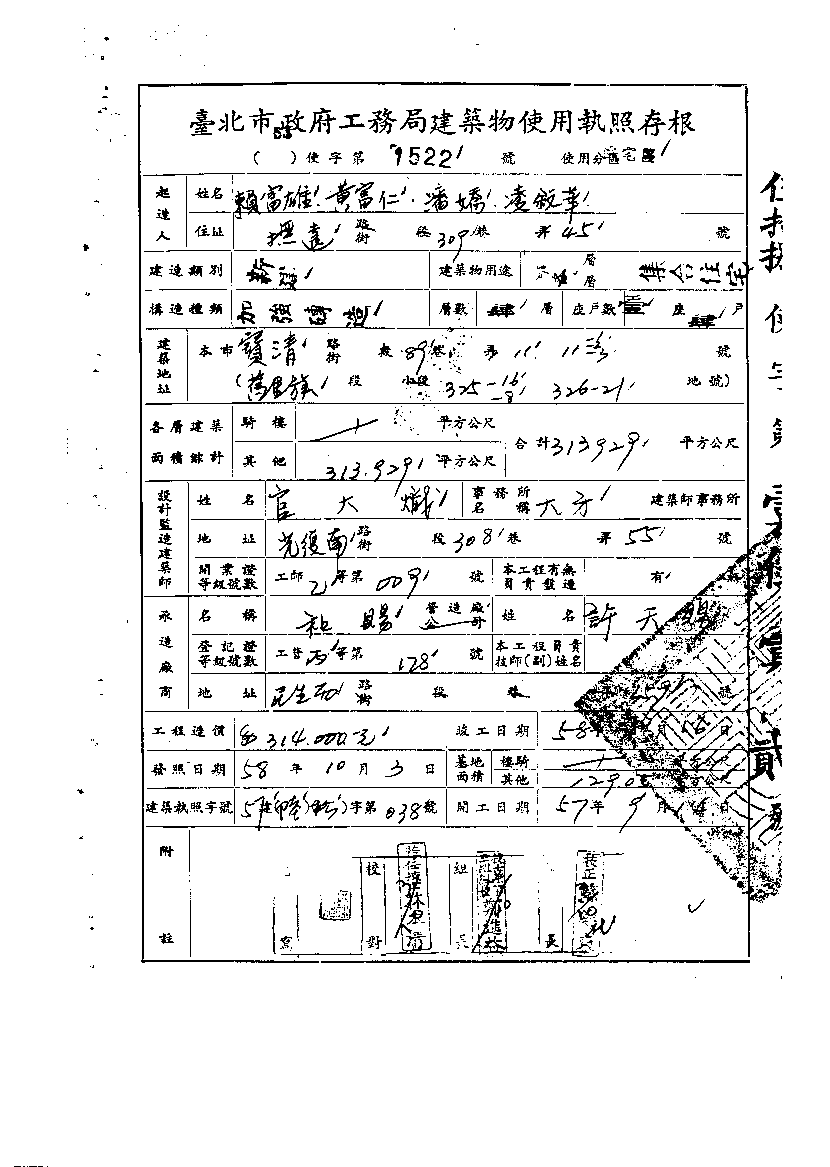 臺北市政府工務局建築物使用執照存根
( ) 使字第 1522 號 使用分區 住宅區
起造人 姓名 賴富雄 黃富仁 潘嬌 凌敘華
住址 撫遠 路街 段 309 巷 弄 45 號
建造類別 新建 建築物用途 層層 集合住宅
構造種類 加強磚造 層數 肆 層 座戶數 壹 座 肆 戶
建築地址 本市 寶清 路街 段 89 巷 弄 11 號
(舊 段 小段 325-16 -8 326-21 地號)
各層建築面積綜計 騎樓 平方公尺 合計 313.929 平方公尺
其他 313.929 平方公尺
設計監造建築師 姓名 官大 事務所名稱 大方 建築師事務所
地址 光復南 路街 段 308 巷 弄 55 號
開業證等級號數 工師 乙 等第 009 號 本工程有無負責監造 有
承造廠商 名稱 和賜 營造廠公司 姓名 許天賜
登記證等級號數 工營 丙 等第 128 號 本工程負責技師(副)姓名
地址 民生西 路街 段 巷 259 號
工程造價 314.000元 竣工日期 58年 月 16日
發照日期 58年10月3日 基地面積 騎樓 平方公尺
其他 平方公尺
建築執照字號 字第 038 號 開工日期 57年9月14日
附註 寫 校對 組長 長
使字第 貳 號